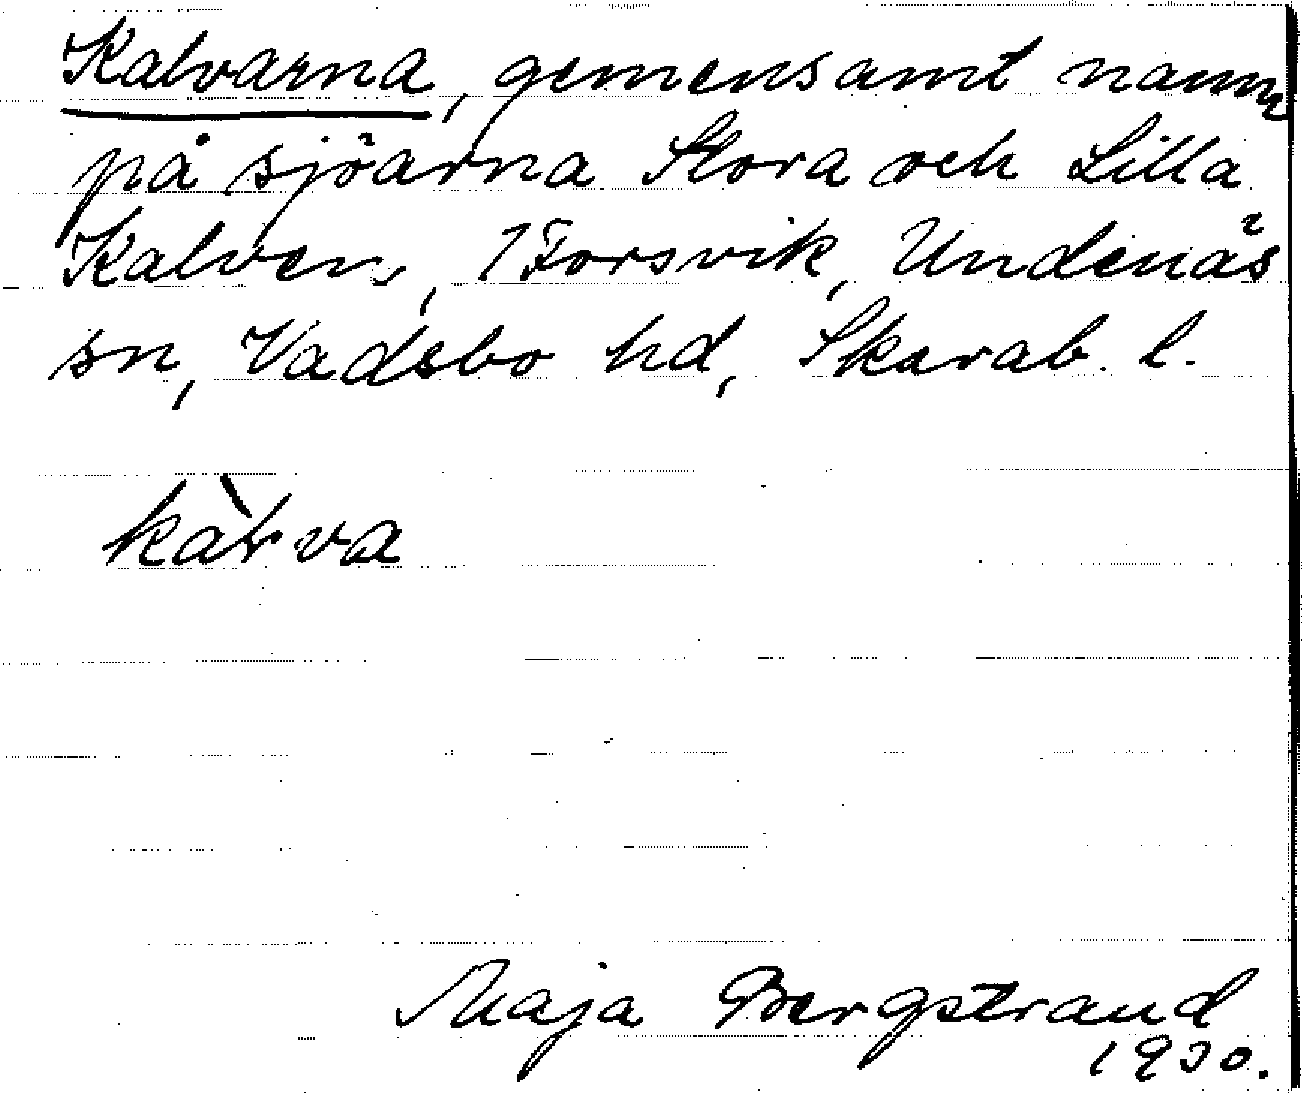 Kalvarna, gemensamt namn
på sjöarna Stora och Lilla
Kalven, 1 Forsvik, Undenäs
sn, Vadsbo hd, Skarab. l.
kàlva
Maja Bergstrand
1930.